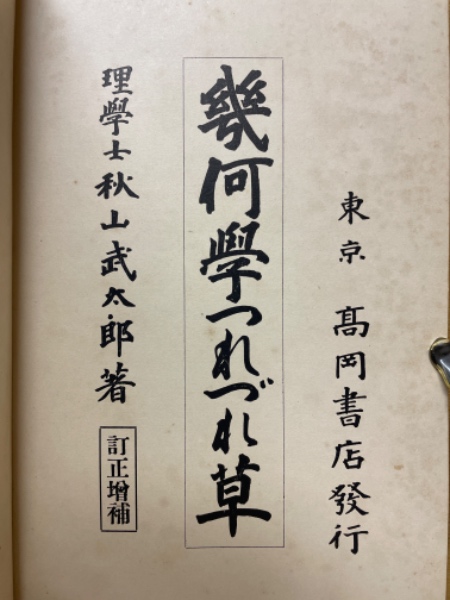 東京 髙岡書店發行
幾何學つれづれ草
理學士秋山武太郎著
訂正增補